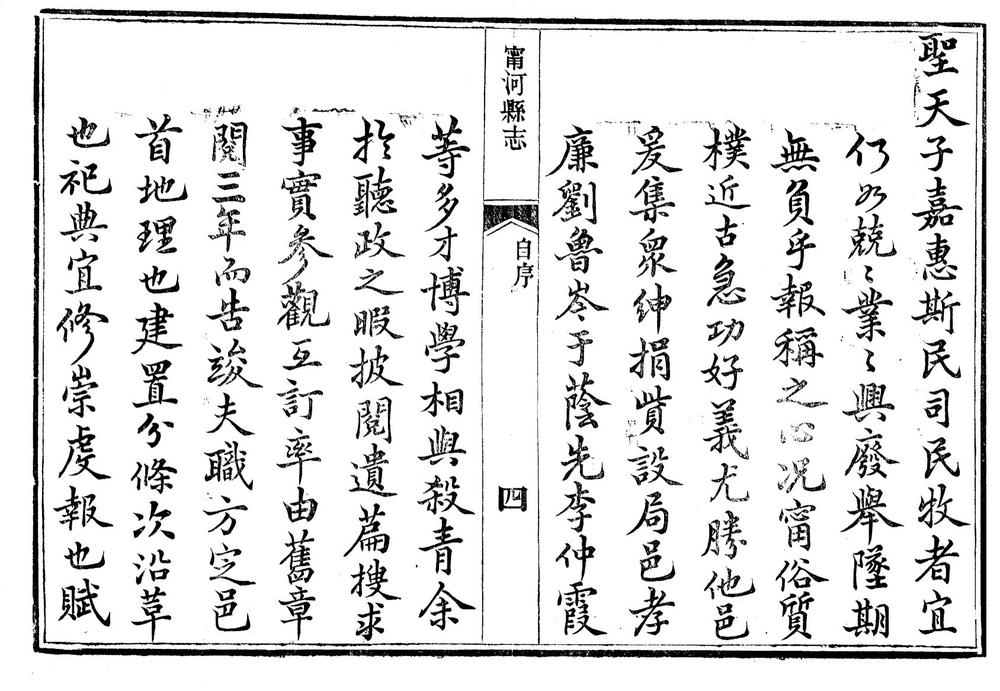 聖天子嘉惠斯民司民牧者宜
仍如兢〻業〻興廢舉墜期
無負乎報稱之心况甯俗質
樸近古急功好義尤勝他邑
爰集衆紳捐貲設局邑孝
廉劉魯岑于蔭先李仲霞
甯河縣志
自序
四
等多才博學相與殺青余
於聽政之暇披閱遺篇搜求
事實參觀互訂率由舊章
閱三年而告竣夫職方定邑
首地理也建置分條次沿革
也祀典宜修崇虔報也賦